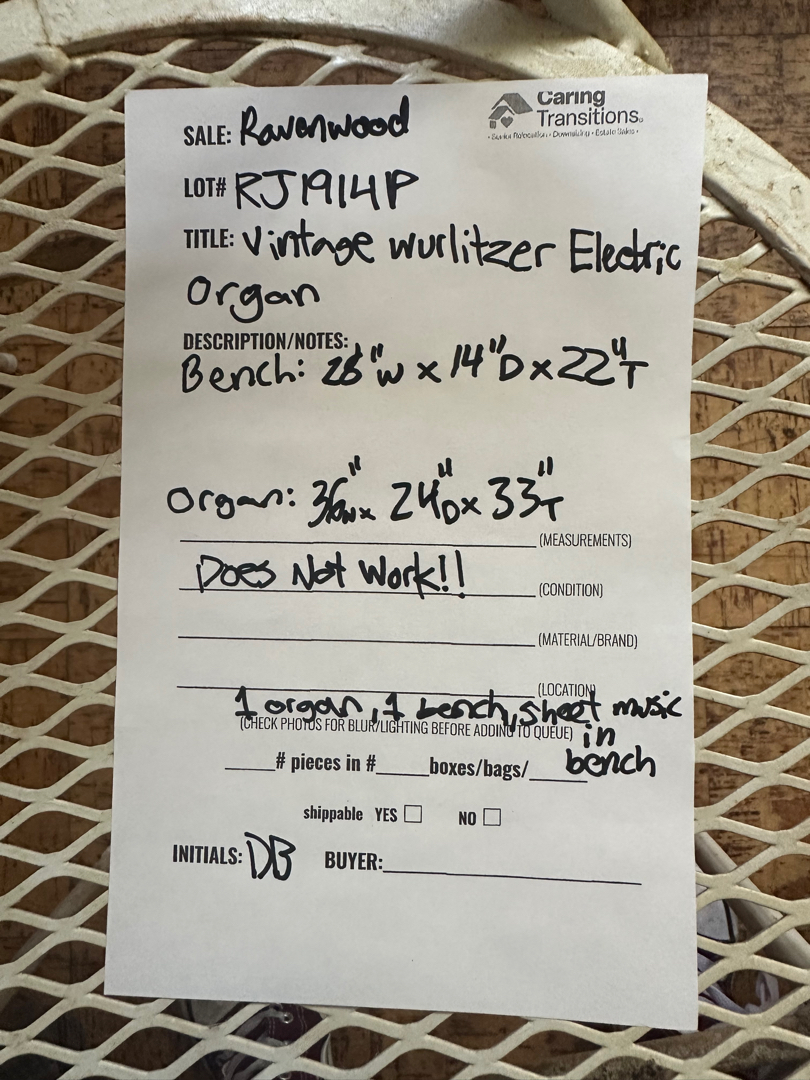 Caring
Transitions®
• Senior Relocation • Downsizing • Estate Sales •
SALE: Ravenwood
LOT# RJ1914P
TITLE: Vintage Wurlitzer Electric
Organ
DESCRIPTION/NOTES:
Bench: "W x 14"D x 22"T
Organ: 36"W x 24"D x 33"T
(MEASUREMENTS)
Does Not Work!! (CONDITION)
(MATERIAL/BRAND)
(LOCATION)
1 organ, 1 bench, sheet music
(CHECK PHOTOS FOR BLUR/LIGHTING BEFORE ADDING TO QUEUE) in
# pieces in # boxes/bags/ bench
shippable YES NO
INITIALS: DB BUYER: